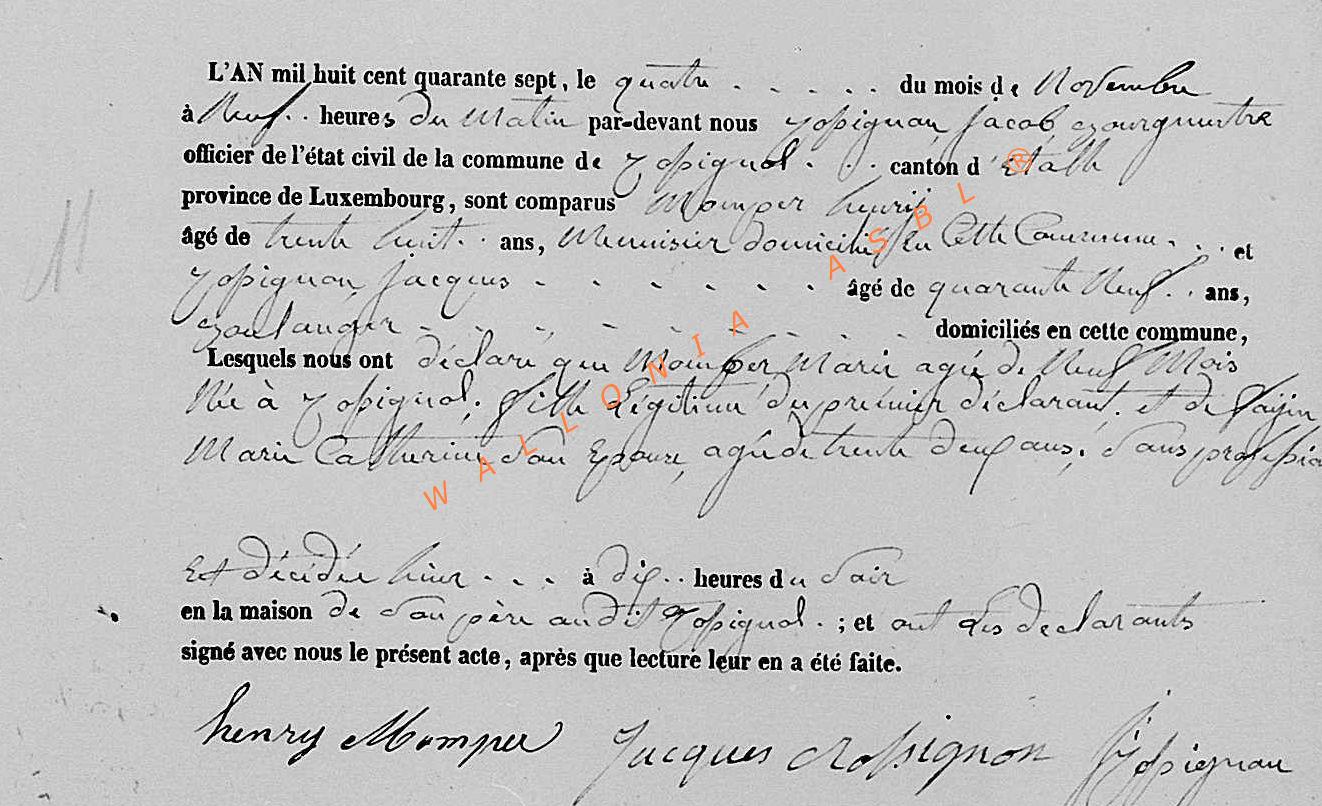 L'AN mil huit cent quarante sept, le quatre . . . . . du mois de Novembre
à Neuf . . heures du Matin par-devant nous Rossignon Jacob, Bourgmestre
officier de l'état civil de la commune de Rossignol . . . canton d'Etalle
province de Luxembourg, sont comparus Momper henrij
âgé de trente huit . . ans, Menuisier domicilié en Cette Commune . . . et
Rossignon Jacques - - - - - - âgé de quarante Neuf . . ans,
Boulanger - - - - - - - - domiciliés en cette commune,
Lesquels nous ont déclaré que Momper Marie agée de Neuf Mois
Née à Rossignol, fille Légitime du premier déclarant, et de
Marie Catherine son Epouse, agée de trente deux ans, sans profession
Est décédée hier - - - à dix . . heures du soir
en la maison de son père audit Rossignol . ; et ont les declarants
signé avec nous le présent acte, après que lecture leur en a été faite.
henry Momper Jacques Rossignon J Rossignon
WALLONIA ASBL ®